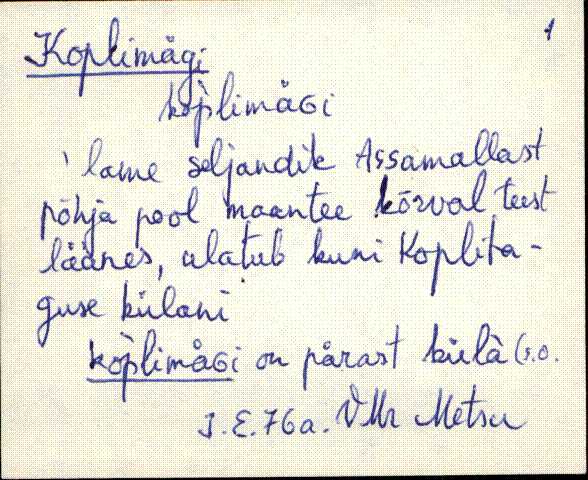 1
Koplimägi
kop̀limäGi
lame seljandik Assamallast
põhja pool maantee kõrval teest
läänes, ulatub kuni Koplita-
guse külani
kop̀limäGi on pärast külà (s.o.
J.E. 76a. VMr Metsu